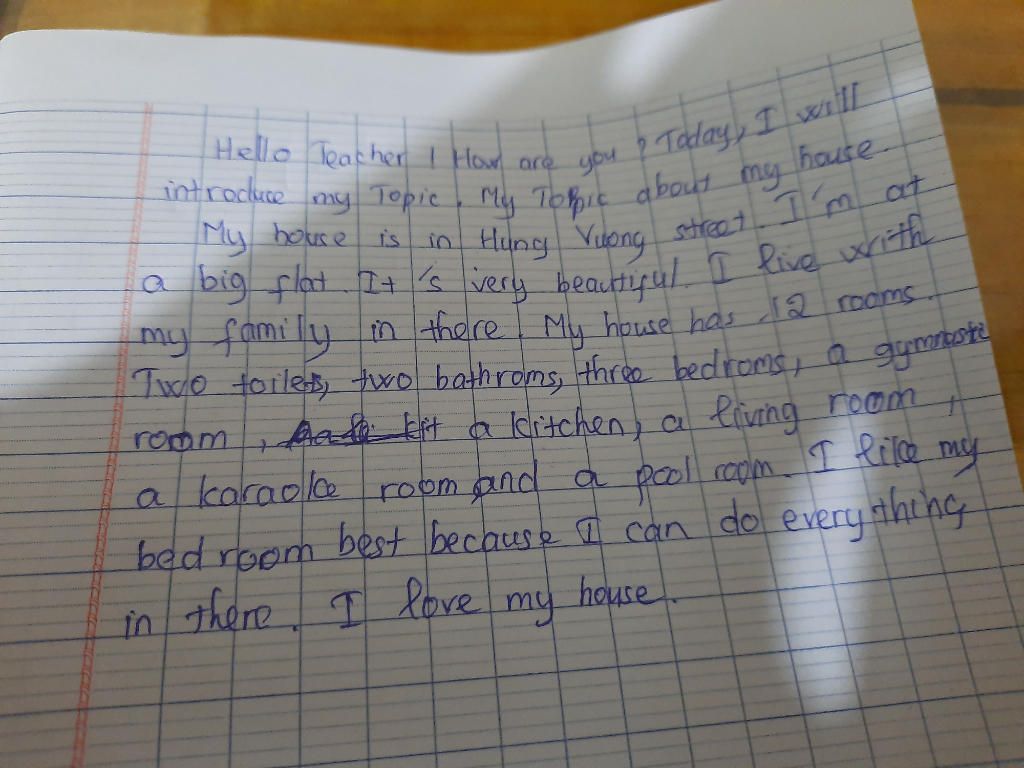 Hello Teacher ! How are you ? Today, I will
introduce my Topic. My Topic about my house.
My house is in Hung Vuong street. I'm at
a big flat. It's very beautiful. I live with
my family in there. My house has 12 rooms.
Two toilets, two bathroms, three bedroms, a
room, a kitchen, a living room,
a karaoke room and a pool room. I like my
bedroom best because I can do everything
in there. I love my house.